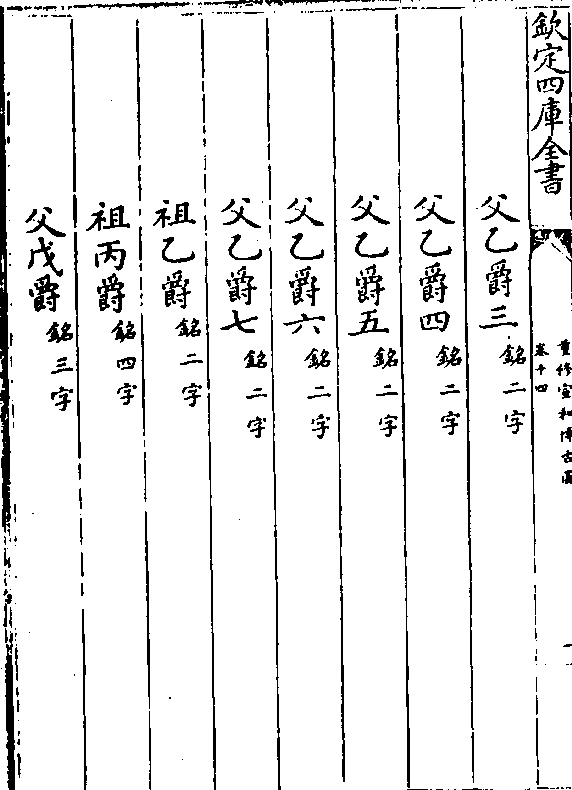 欽定四庫全書
重修宣和博古圖
卷十四
一
父乙爵三銘二字
父乙爵四銘二字
父乙爵五銘二字
父乙爵六銘二字
父乙爵七銘二字
祖乙爵銘二字
祖丙爵銘四字
父戊爵銘三字